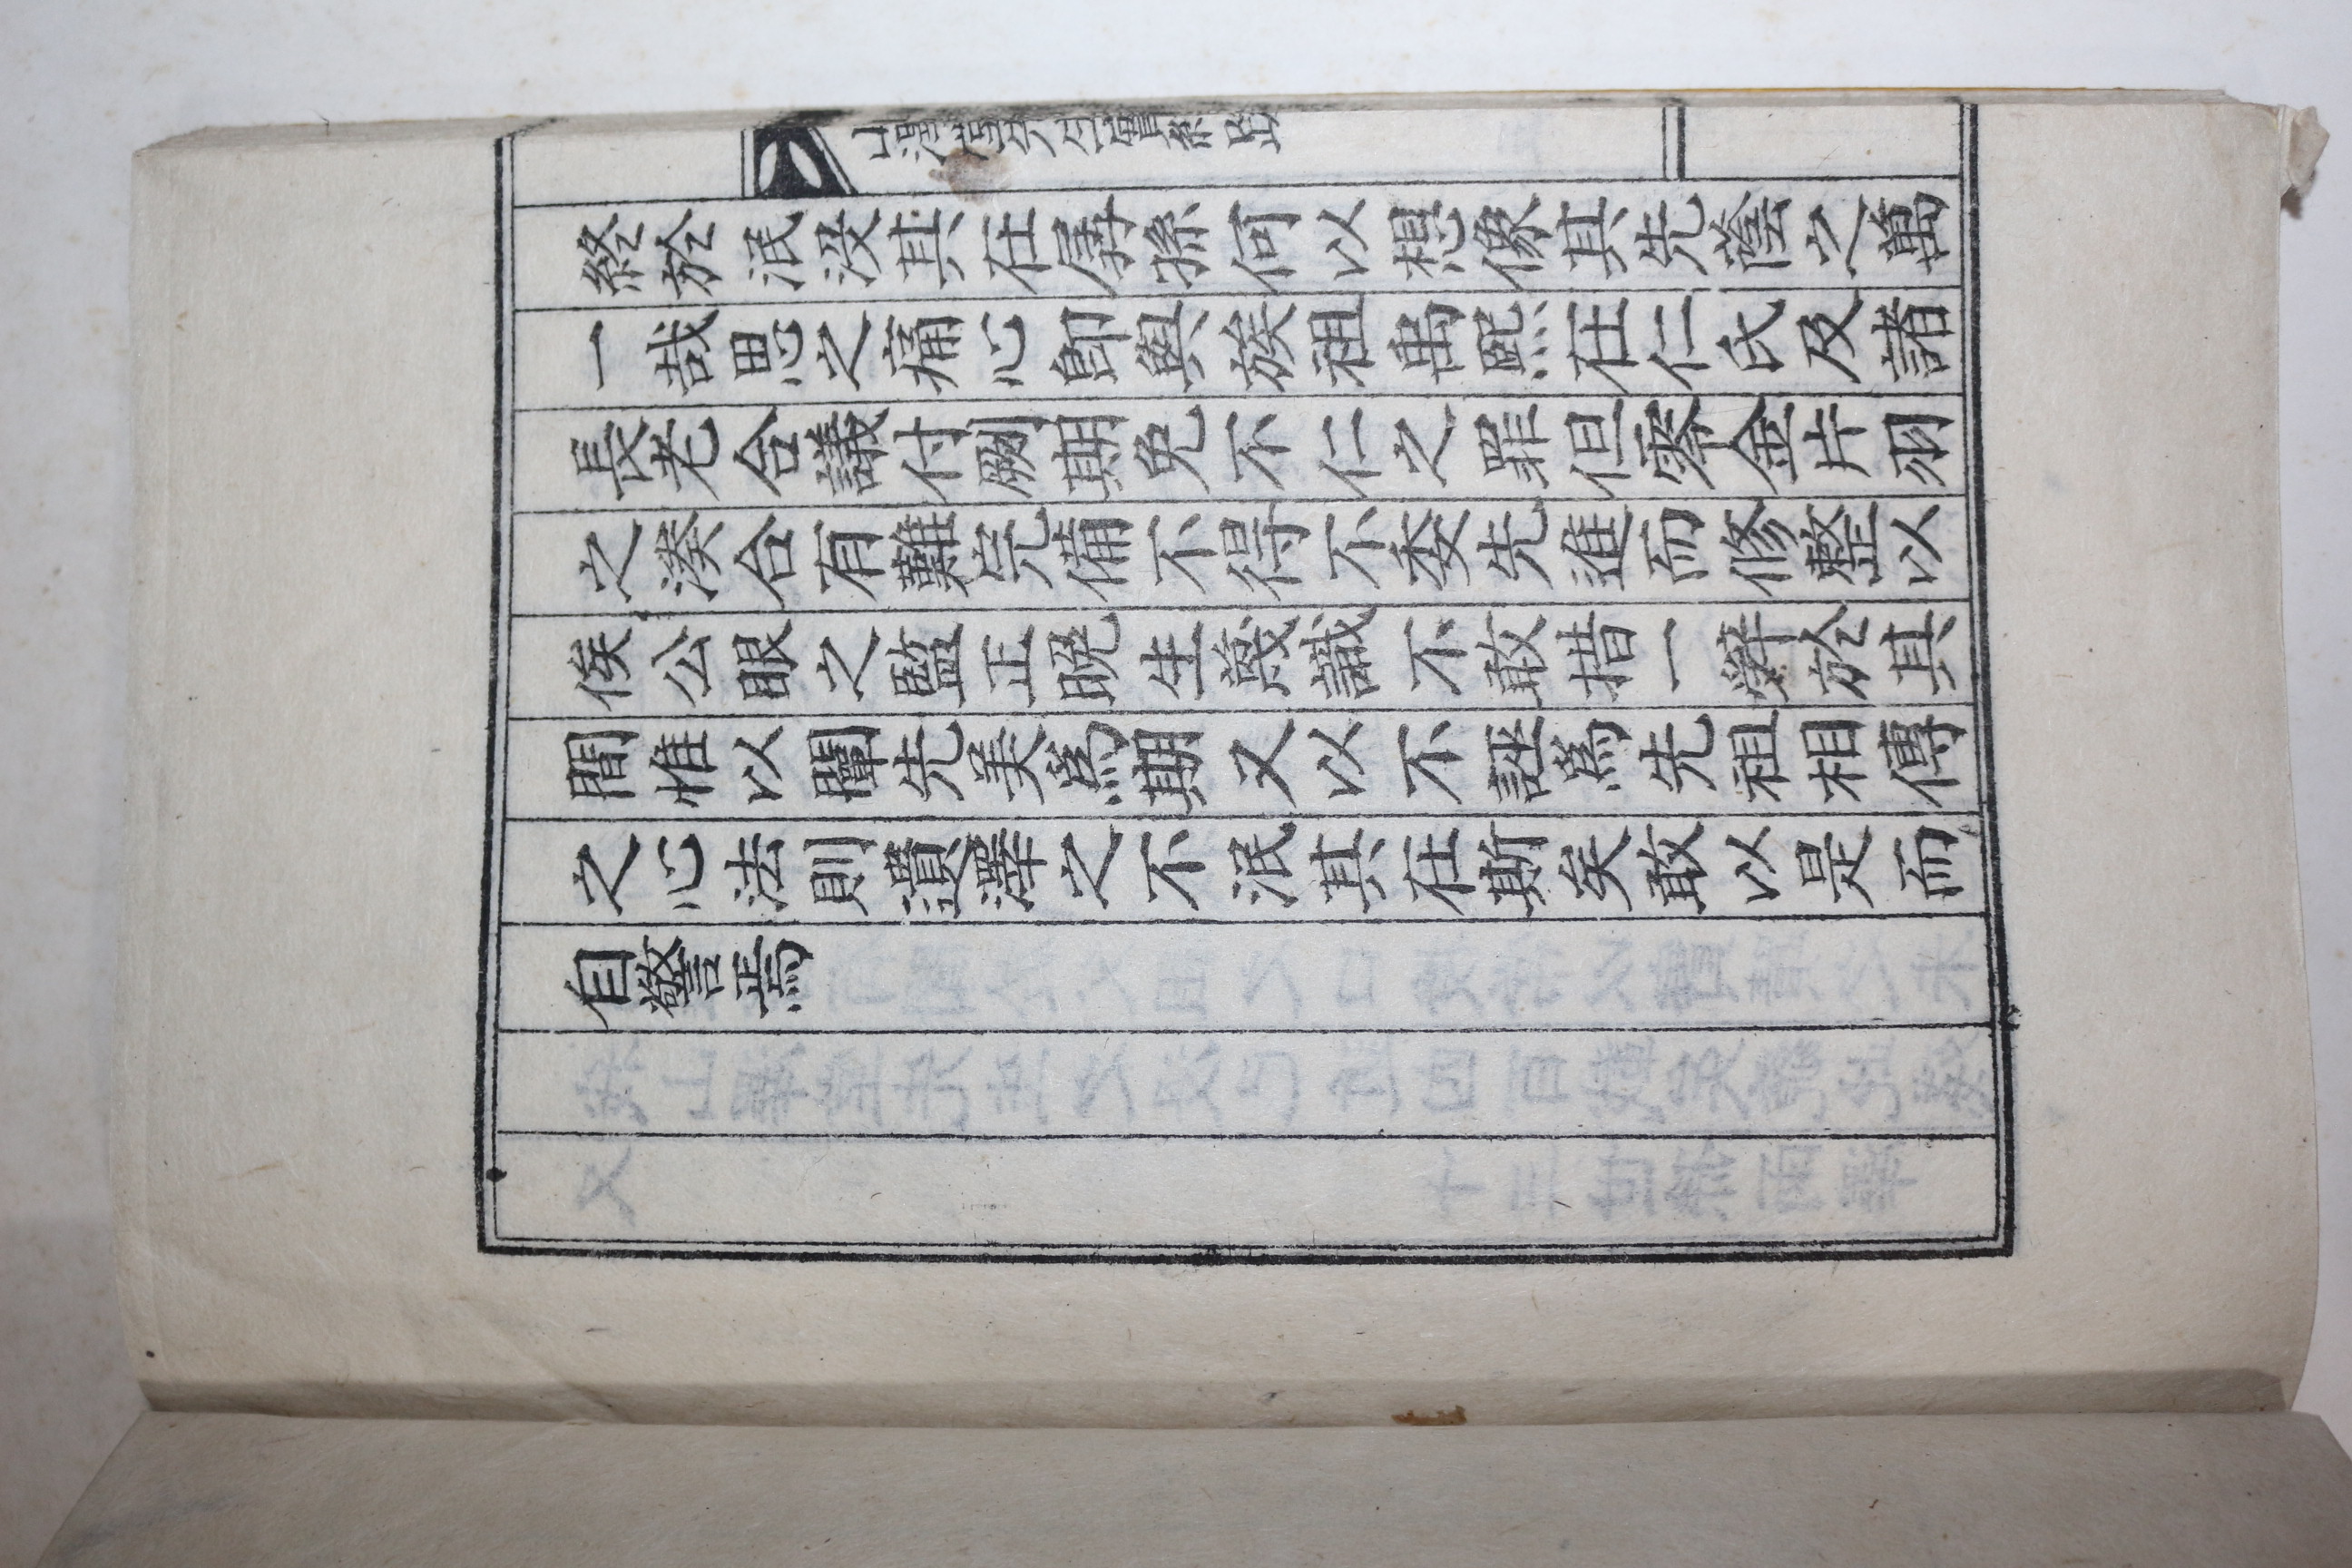 終於泯没其在孱孫何以想像其先蔭之萬
一哉思之痛心卽與族祖禹熙在仁氏及諸
長老合議付劂期免不仁之罪但零金片羽
之湊合有難完備不得不委先進而修整以
俟公眼之監正晩生蔑識不敢措一辭於其
間惟以闡先美爲期又以不誣爲先祖相傳
之心法則遺澤之不泯其在斯矣敢以是而
自警焉
堂先生實紀跋